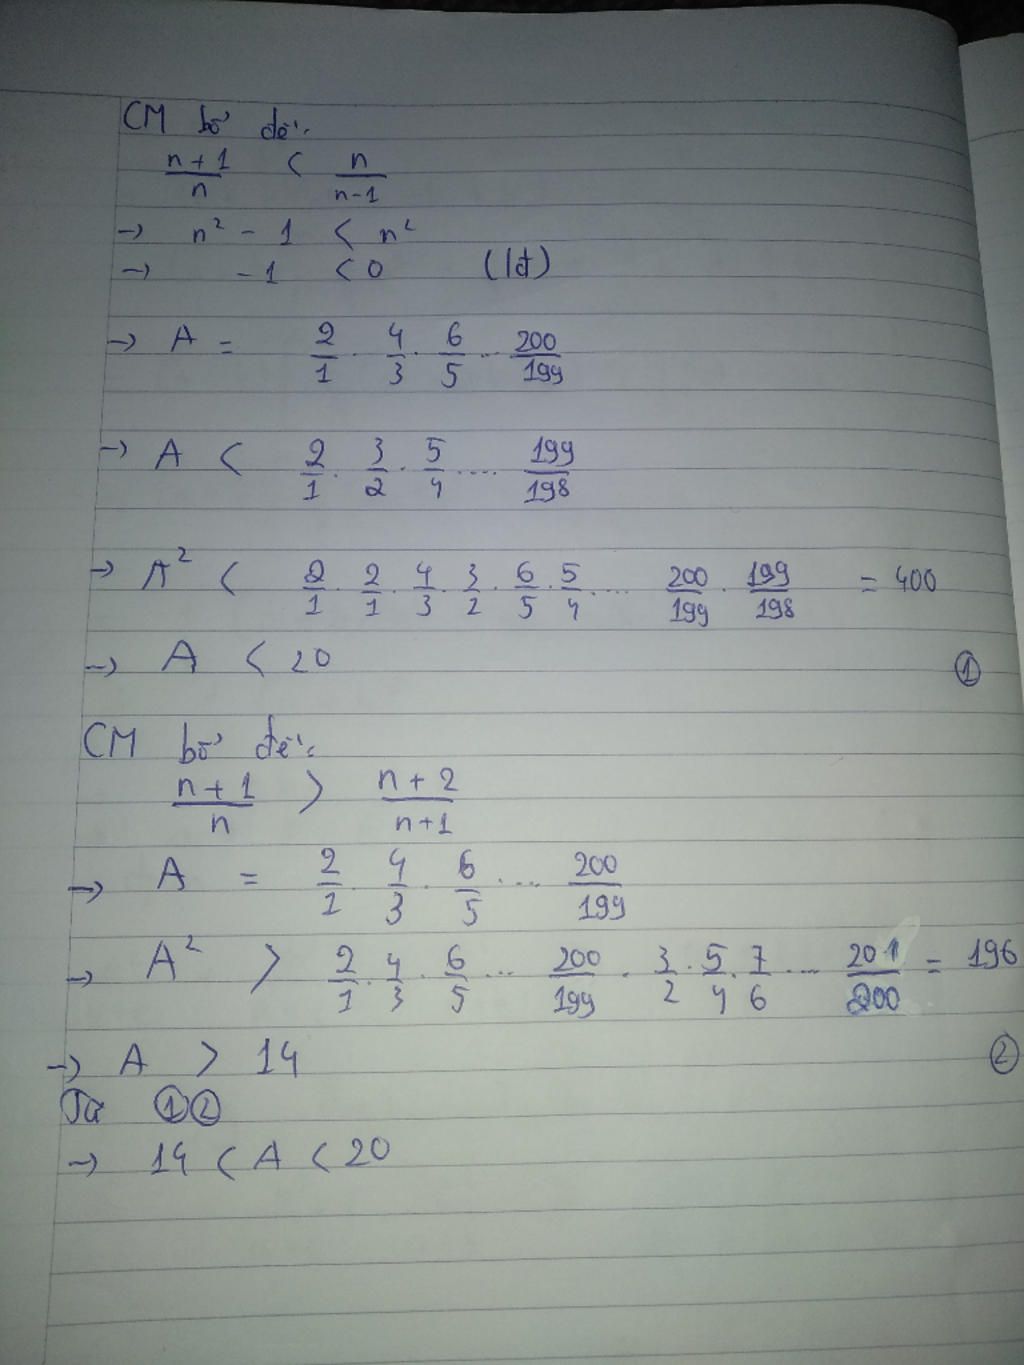 CM bổ đề:
n+1/n < n/n-1
→ n² - 1 < n²
→ -1 < 0 (lđ)
→ A = 2/1 · 4/3 · 6/5 ... 200/199
→ A < 2/1 · 3/2 · 5/4 .... 199/198
→ A² < 2/1 · 2/1 · 4/3 · 3/2 · 6/5 · 5/4 .... 200/199 · 199/198 = 400
→ A < 20 ①
CM bổ đề:
n+1/n > n+2/n+1
→ A = 2/1 · 4/3 · 6/5 ... 200/199
→ A² > 2/1 · 4/3 · 6/5 ... 200/199 · 3/2 · 5/4 · 7/6 ... 201/200 = 196
→ A > 14 ②
Từ ①②
→ 14 < A < 20